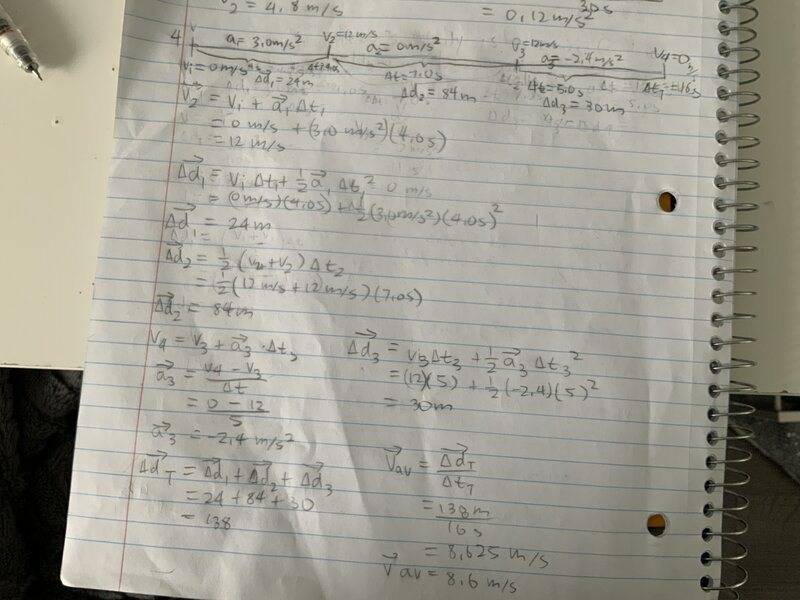 V₂ = 4.8 m/s
= 0.12 m/s²
4
a₁= 3.0m/s² V₂=12m/s a₂= 0m/s² V₃=12m/s a₃= -2.4m/s² V₄=0
Vᵢ= 0m/s Δd₁=24m Δt=7.0s Δt=5.0s Δt_T= 16s
Δd₂= 84m Δd₃= 30m
V₂ = Vᵢ + a₁ Δt₁
= 0 m/s + (3.0 m/s²)(4.0s)
= 12 m/s
Δd₁ = Vᵢ Δt₁ + ½ a₁ Δt₁²
= (0m/s)(4.0s) + ½(3.0m/s²)(4.0s)²
Δd₁ = 24m
Δd₂ = ½ (V₂+V₂) Δt₂
= ½ (12m/s + 12m/s)(7.0s)
Δd₂ = 84m
V₄ = V₃ + a₃ · Δt₃
a₃ = V₄ - V₃ / Δt
= 0 - 12 / 5
a₃ = -2.4 m/s²
Δd₃ = V₃Δt₃ + ½ a₃ Δt₃²
= (12)(5) + ½ (-2.4)(5)²
= 30m
Δd_T = Δd₁ + Δd₂ + Δd₃
= 24 + 84 + 30
= 138
V_av = Δd_T / Δt_T
= 138 m / 16 s
= 8.625 m/s
V_av = 8.6 m/s